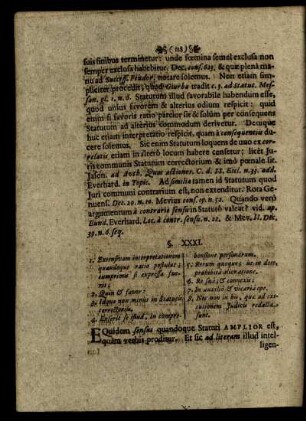 (12)
suis finibus terminetur: unde fœmina semel exclusa non
semper exclusa habebitur. Dec. cons. 629. & quæ plena manu
ad Success. Feudor. notare solemus. Non etiam simpliciter
procedit, quod Giurba tradit c. 3. ad Statut. Messan.
gl. 1. n. 6. Statutum illud favorabile habendum esse,
quod unius favorem & alterius odium respicit: quid
enim si favoris ratio par sit & solùm per consequens
Statutum ad alterius incommodum derivetur. Denique
huc etiam interpretatio respicit, quam à consequentia ducere
solemus. Sic enim Statutum loquens de uno ex correlatis
etiam in altero locum habere censetur: licet Juris
communis Statutum correctorium & imò pœnale sit.
Jason. ad Auth. Quas actiones. C. d. SS. Eccl. n. 37. add.
Everhard. in Topic. Ad similia tamen id Statutum quod
Juri communi contrarium est, non extenditur: Rota Genuens.
Dec. 20. n. 10. Merius cons. 17. n. 52. Quando verò
argumentum à contrario sensu in Statutis valeat? vid. ap.
Eund. Everhard. Loc. à contr. sensu. n. 12. & Mev. II. Dec.
39. n. 6. seq.
§ XXXI.
1. Extensivam interpretationem
quandoque ratio postulat;
imprimis si expressa fuerit;
2. Quin & favor:
3. Idque non minùs in Statutis
correctoriis,
4. Exemplo
bonitate personarum,
5. Rerum quoque; ut in deterioribus
6. Re sui; & connexis:
7. In amissio & vicario ejus.
8. Nec non in his, quæ ad executionem
Judicio redacta
sunt.
EQuidem sensus quandoque Statuti AMPLIOR est,
quàm verbis proditur. Et sic ad literam illud intelligen-